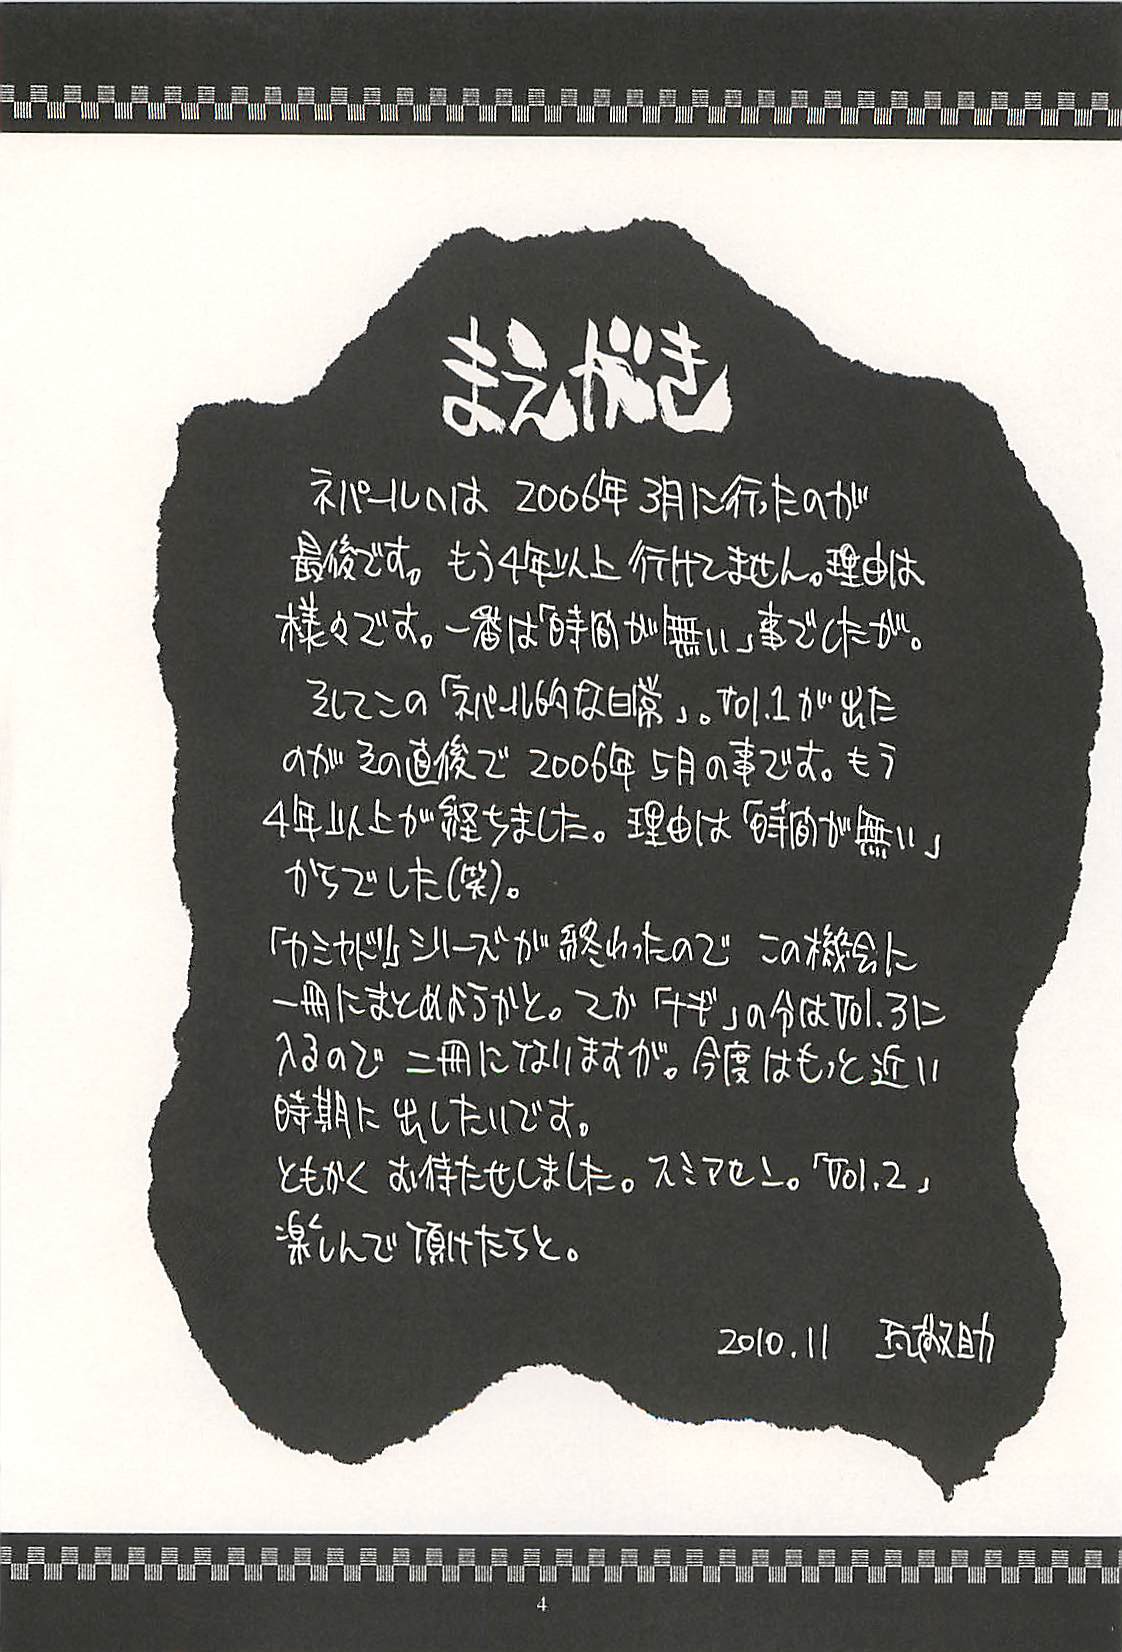 まえがき
ネパールへは 2006年 3月に行ったのが
最後です。もう4年以上 行けてません。理由は
様々です。一番は「時間が無い」事でしたが。
そしてこの「ネパール的な日常」。Vol.1が出た
のが その直後で 2006年 5月の事です。もう
4年以上が経ちました。理由は「時間が無い」
からでした(笑)。
「カミヤドリ」シリーズが 終わったので この機会に
一冊にまとめようかと。てか「ナギ」の分はVol.3に
入るので 二冊になりますが。今度はもっと近い
時期に 出したいです。
ともかく お待たせしました。スミマセン。「Vol.2」
楽しんで 頂けたらと。
2010.11
4